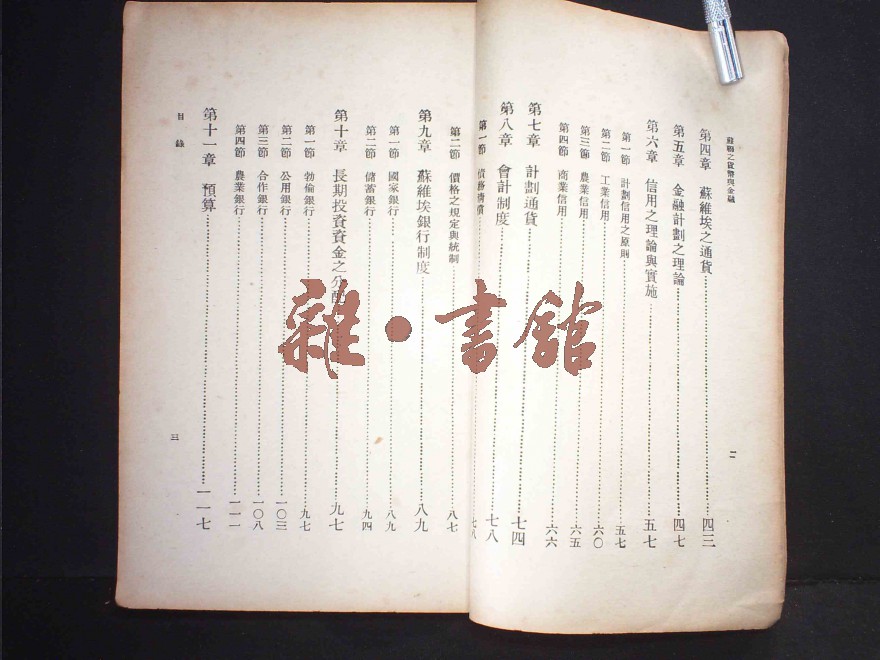 蘇聯之貨幣與金融
二
第四章 蘇維埃之通貨 四三
第五章 金融計劃之理論 四七
第六章 信用之理論與實施 五七
第一節 計劃信用之原則 五七
第二節 工業信用 六〇
第三節 農業信用 六五
第四節 商業信用 六六
第七章 計劃通貨 七四
第八章 會計制度 七八
第一節 債務清償 七八
第二節 價格之規定與統制 八七
第九章 蘇維埃銀行制度 八九
第一節 國家銀行 八九
第二節 儲蓄銀行 九四
第十章 長期投資資金之分配 九七
第一節 勃倫銀行 九七
第二節 公用銀行 一〇三
第三節 合作銀行 一〇八
第四節 農業銀行 一一一
第十一章 預算 一一七
目錄
三
雜·書館